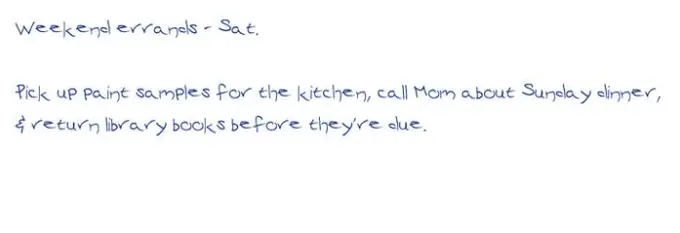 Weekend errands - Sat.
Pick up paint samples for the kitchen, call Mom about Sunday dinner,
& return library books before they're due.